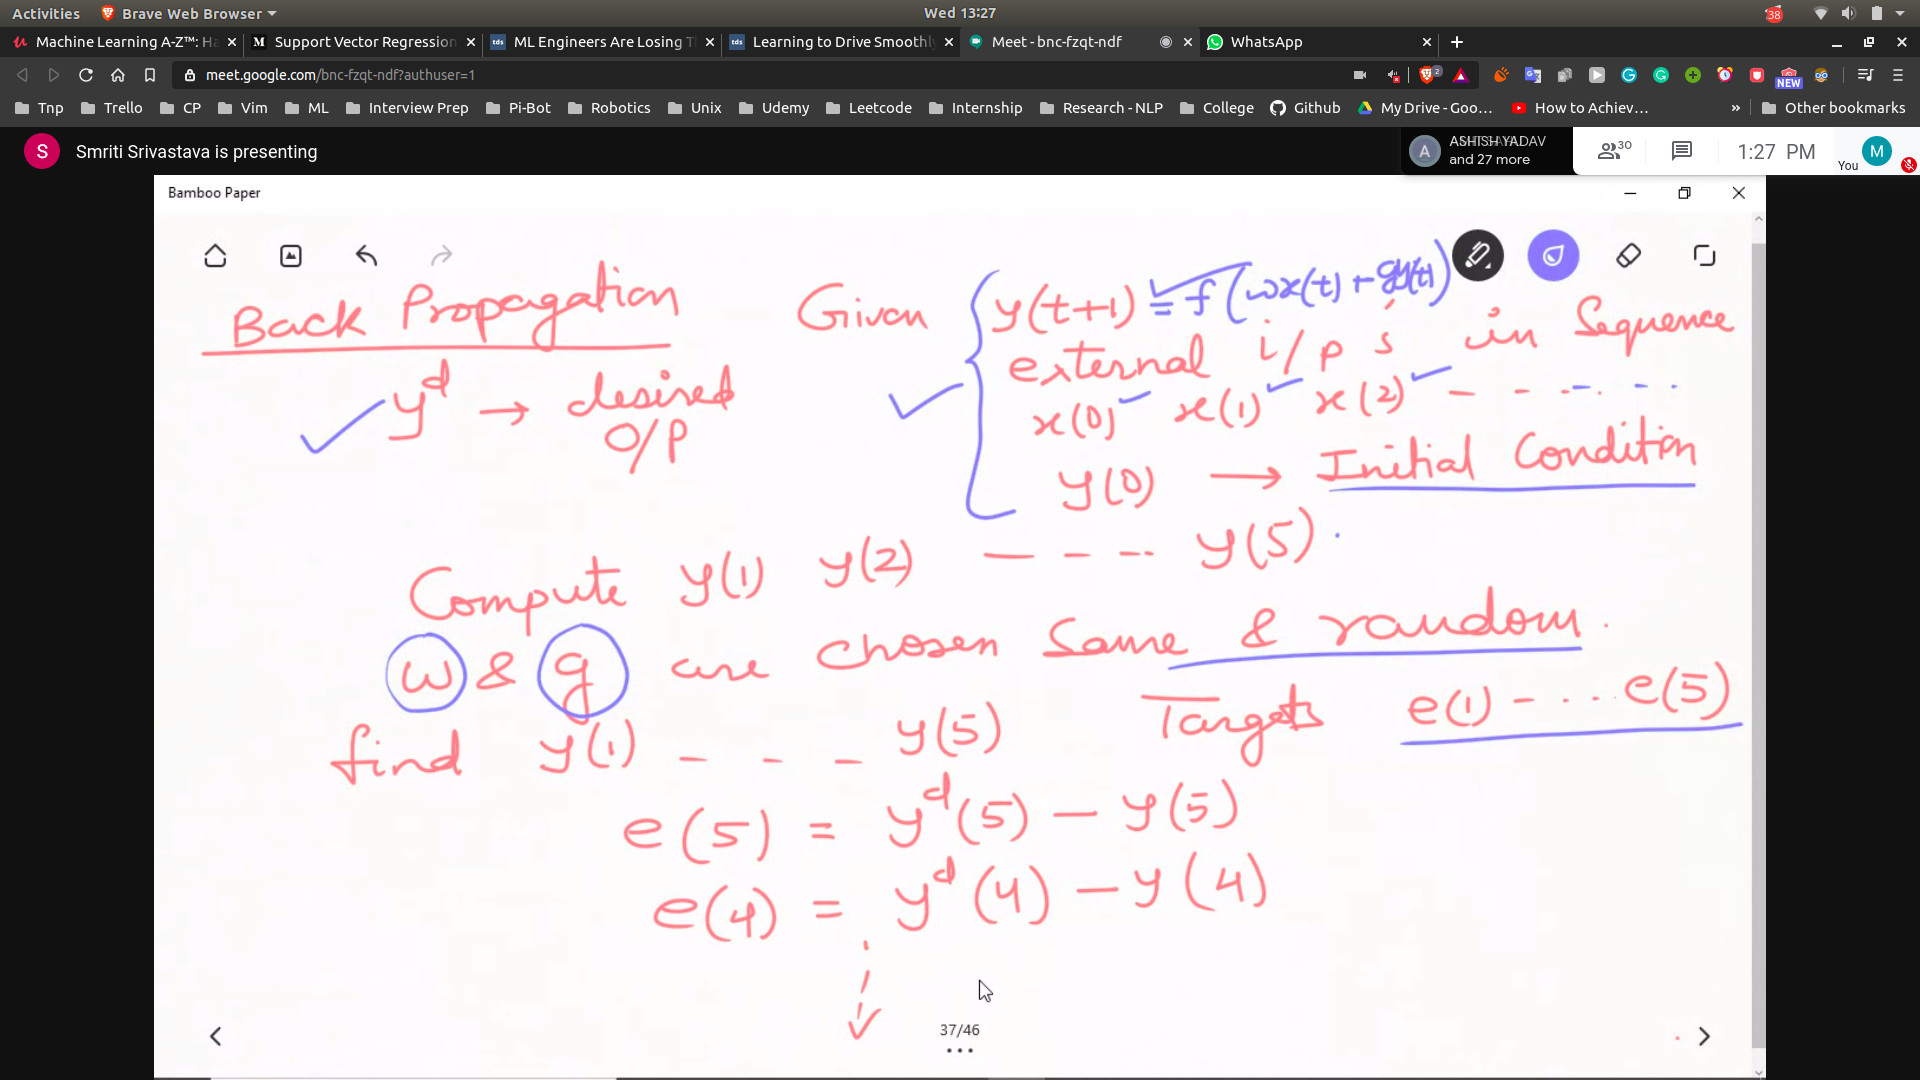 Activities Brave Web Browser Wed 13:27 38
Machine Learning A-Z™: Ha Support Vector Regression ML Engineers Are Losing T Learning to Drive Smoothly Meet - bnc-fzqt-ndf WhatsApp
meet.google.com/bnc-fzqt-ndf?authuser=1 2 NEW
Tnp Trello CP Vim ML Interview Prep Pi-Bot Robotics Unix Udemy Leetcode Internship Research - NLP College Github My Drive - Goo... How to Achiev... » Other bookmarks
S Smriti Srivastava is presenting A ASHISH YADAV and 27 more 30 1:27 PM You M
Bamboo Paper
Back Propagation
y^d → desired
O/P
Given y(t+1) = f(wx(t) + gy(t))
external i/p s in Sequence
x(0) x(1) x(2) - - - - - -
y(0) → Initial Condition
Compute y(1) y(2) - - - y(5).
w & g are chosen same & random.
find y(1) - - - y(5) Targets e(1) - ... e(5)
e(5) = y^d(5) - y(5)
e(4) = y^d(4) - y(4)
37/46